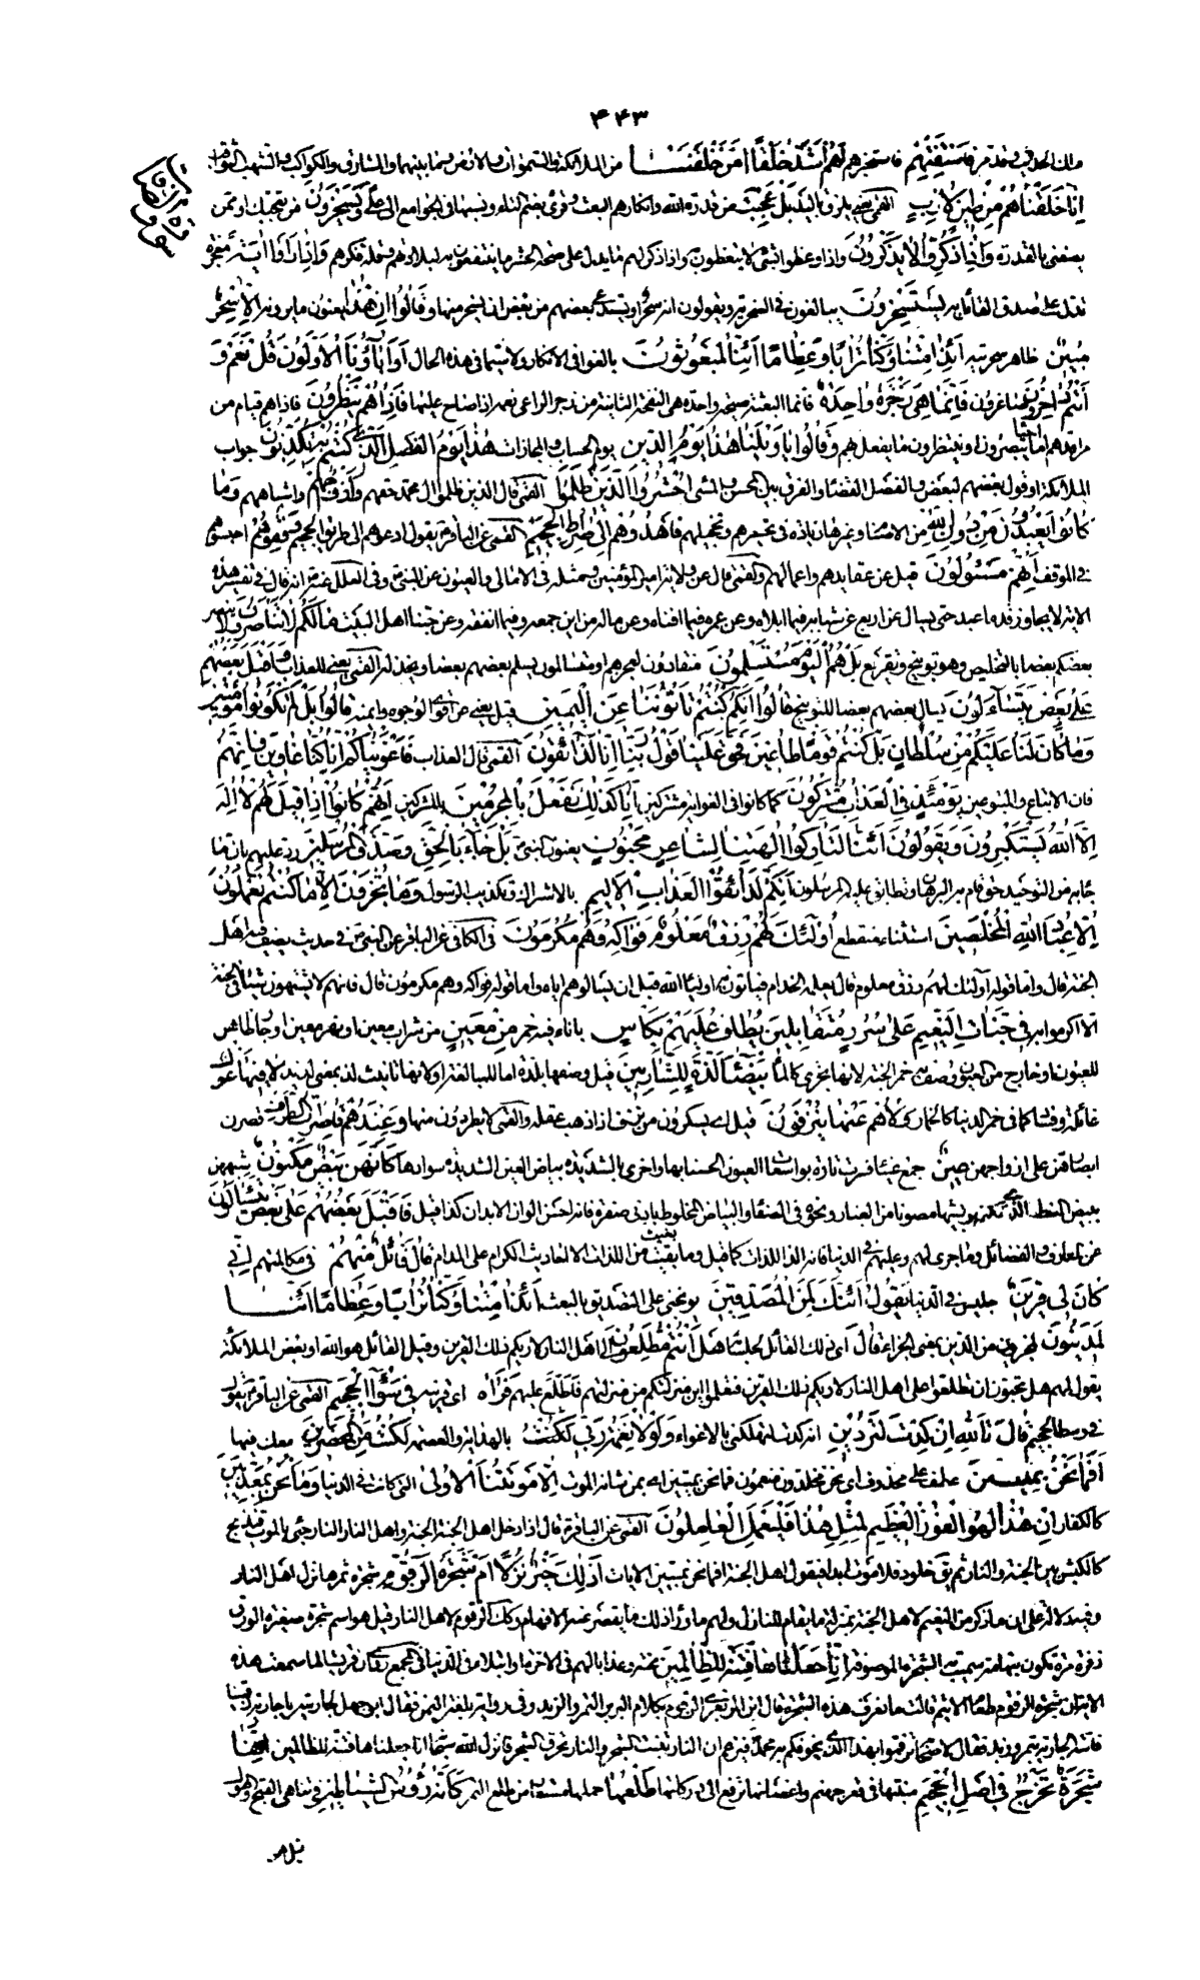 ۴۴۳
فَاسْتَفْتِهِمْ فاستخبرهم أَهُمْ أَشَدُّ خَلْقًا أَمْ مَنْ خَلَقْنَا من الملائكة والسموات والارض وما بينهما والمشارق والكواكب والشهب الثواقب
إِنَّا خَلَقْنَاهُمْ مِنْ طِينٍ لَازِبٍ القمي يعني يلزق باليد بَلْ عَجِبْتَ من قدرة الله وانكارهم البعث وقرئ بضم التاء ونسبها في الجوامع الى علي وَيَسْخَرُونَ من تعجبك
وَإِذَا ذُكِّرُوا لَا يَذْكُرُونَ واذا وعظوا بشيء لا يتعظون به او اذا ذكر لهم ما يدل على صحة الحشر ما ينتفعون به لبلادتهم وقلة فكرهم وَإِذَا رَأَوْا آيَةً معجزة
تدل على صدق القائل به يَسْتَسْخِرُونَ يبالغون في السخرية ويقولون انه سحر او يستدعي بعضهم من بعض ان يسخر منها وَقَالُوا إِنْ هَٰذَا يعنون ما يرونه إِلَّا سِحْرٌ
مُبِينٌ ظاهر سحريته أَإِذَا مِتْنَا وَكُنَّا تُرَابًا وَعِظَامًا أَإِنَّا لَمَبْعُوثُونَ بالغوا في الانكار ولا سيما في هذه الحال أَوَآبَاؤُنَا الْأَوَّلُونَ قُلْ نَعَمْ وَ
أَنْتُمْ دَاخِرُونَ صاغرون فَإِنَّمَا هِيَ زَجْرَةٌ وَاحِدَةٌ فانما البعثة صيحة واحدة هي النفخة الثانية من زجر الراعي غنمه اذا صاح عليها فَإِذَا هُمْ يَنْظُرُونَ فاذا هم قيام من
مراقدهم احياء يبصرون او ينتظرون ما يفعل بهم وَقَالُوا يَا وَيْلَنَا هَٰذَا يَوْمُ الدِّينِ يوم الحساب والمجازات هَٰذَا يَوْمُ الْفَصْلِ الَّذِي كُنْتُمْ بِهِ تُكَذِّبُونَ جواب
الملائكة او قول بعضهم لبعض والفصل القضاء او الفرق بين المحسن والمسيء احْشُرُوا الَّذِينَ ظَلَمُوا القمي قال الذين ظلموا آل محمد حقهم وَأَزْوَاجَهُمْ واشباههم وَمَا
كَانُوا يَعْبُدُونَ مِنْ دُونِ اللَّهِ من الاصنام وغيرها زيادة في تحسيرهم وتخجيلهم فَاهْدُوهُمْ إِلَىٰ صِرَاطِ الْجَحِيمِ القمي عن الباقر يقول ادعوهم الى طريق الجحيم وَقِفُوهُمْ احبسوهم
في الموقف إِنَّهُمْ مَسْئُولُونَ قيل عن عقايدهم واعمالهم والقمي قال عن ولاية امير المؤمنين ومثله في الامالي والعيون عن النبي وفي العلل عنه انه قال في تفسير هذه
الآية لا يجاوز قدما عبد حتى يسأل عن اربع عن شبابه فيما ابلاه وعن عمره فيما افناه وعن ماله من اين جمعه وفيما انفقه وعن حبنا اهل البيت مَا لَكُمْ لَا تَنَاصَرُونَ لا ينصر
بعضكم بعضا بالتخليص وهو توبيخ وتقريع بَلْ هُمُ الْيَوْمَ مُسْتَسْلِمُونَ منقادون لعجزهم او متسالمون يسلم بعضهم بعضا ويخذله القمي يعني للعذاب وَأَقْبَلَ بَعْضُهُمْ
عَلَىٰ بَعْضٍ يَتَسَاءَلُونَ يسأل بعضهم بعضا للتوبيخ قَالُوا إِنَّكُمْ كُنْتُمْ تَأْتُونَنَا عَنِ الْيَمِينِ قيل يعني عن اقوى الوجوه وايمنه قَالُوا بَلْ لَمْ تَكُونُوا مُؤْمِنِينَ
وَمَا كَانَ لَنَا عَلَيْكُمْ مِنْ سُلْطَانٍ بَلْ كُنْتُمْ قَوْمًا طَاغِينَ فَحَقَّ عَلَيْنَا قَوْلُ رَبِّنَا إِنَّا لَذَائِقُونَ القمي قال العذاب فَأَغْوَيْنَاكُمْ إِنَّا كُنَّا غَاوِينَ فَإِنَّهُمْ
فان الاتباع والمتبوعين يَوْمَئِذٍ فِي الْعَذَابِ مُشْتَرِكُونَ كما كانوا في الغواية مشتركين إِنَّا كَذَٰلِكَ نَفْعَلُ بِالْمُجْرِمِينَ بالمشركين إِنَّهُمْ كَانُوا إِذَا قِيلَ لَهُمْ لَا إِلَٰهَ
إِلَّا اللَّهُ يَسْتَكْبِرُونَ وَيَقُولُونَ أَئِنَّا لَتَارِكُوا آلِهَتِنَا لِشَاعِرٍ مَجْنُونٍ يعنون النبي بَلْ جَاءَ بِالْحَقِّ وَصَدَّقَ الْمُرْسَلِينَ رد عليهم بان ما
جاء به من التوحيد حق قام به البرهان وتطابق عليه المرسلون إِنَّكُمْ لَذَائِقُوا الْعَذَابِ الْأَلِيمِ بالاشراك وتكذيب الرسول وَمَا تُجْزَوْنَ إِلَّا مَا كُنْتُمْ تَعْمَلُونَ
إِلَّا عِبَادَ اللَّهِ الْمُخْلَصِينَ استثناء منقطع أُولَٰئِكَ لَهُمْ رِزْقٌ مَعْلُومٌ فَوَاكِهُ وَهُمْ مُكْرَمُونَ في الكافي عن الباقر عن النبي في حديث يصف فيه اهل
الجنة قال واما قوله اولئك لهم رزق معلوم قال يعلمه الخدام فيأتون به اولياء الله قبل ان يسألوهم اياه واما قوله فواكه وهم مكرمون قال فانهم لا يشتهون شيئا في الجنة
الا اكرموا به فِي جَنَّاتِ النَّعِيمِ عَلَىٰ سُرُرٍ مُتَقَابِلِينَ يُطَافُ عَلَيْهِمْ بِكَأْسٍ باناء فيه خمر مِنْ مَعِينٍ من شراب معين او نهر معين اي جار ظاهر
للعيون او خارج من العيون وصف به خمر الجنة لانها تجري كالماء بَيْضَاءَ لَذَّةٍ لِلشَّارِبِينَ قيل وصفها بلذة اما للمبالغة او لانها تأنيث لذ بمعنى لذيذ لَا فِيهَا غَوْلٌ
غائلة وفساد كما في خمر الدنيا كالخمار وَلَا هُمْ عَنْهَا يُنْزَفُونَ قيل اي يسكرون من نزف اذا ذهب عقله والقمي لا يطردون منها وَعِنْدَهُمْ قَاصِرَاتُ الطَّرْفِ قصرن
ابصارهن على ازواجهن عِينٌ جمع عيناء فسرت تارة بواسعات العيون لحسنها واخرى بالشديدة بياض العين الشديدة سوادها كَأَنَّهُنَّ بَيْضٌ مَكْنُونٌ شبههن
ببيض النعام الذي تكنه بريشها مصونا من الغبار ونحوه في الصفاء والبياض المخلوط بادنى صفرة فانه احسن الوان الابدان كذا قيل فَأَقْبَلَ بَعْضُهُمْ عَلَىٰ بَعْضٍ يَتَسَاءَلُونَ
عن المعارف والفضائل وما جرى لهم وعليهم في الدنيا فانه الذ اللذات كما قيل وما بقيت من اللذات الا احاديث الكرام على المدام قَالَ قَائِلٌ مِنْهُمْ في مكالمتهم إِنِّي
كَانَ لِي قَرِينٌ جليس في الدنيا يَقُولُ أَئِنَّكَ لَمِنَ الْمُصَدِّقِينَ يوبخني على التصديق بالبعث أَإِذَا مِتْنَا وَكُنَّا تُرَابًا وَعِظَامًا أَإِنَّا
لَمَدِينُونَ لمجزيون من الدين بمعنى الجزاء قَالَ اي ذلك القائل لجلسائه هَلْ أَنْتُمْ مُطَّلِعُونَ الى اهل النار لاريكم ذلك القرين وقيل القائل هو الله او بعض الملائكة
يقول لهم هل تحبون ان تطلعوا على اهل النار لاريكم ذلك القرين فتعلموا اين منزلتكم من منزلتهم فَاطَّلَعَ عليهم فَرَآهُ اي قرينه فِي سَوَاءِ الْجَحِيمِ القمي عن الباقر يقول
في وسط الجحيم قَالَ تَاللَّهِ إِنْ كِدْتَ لَتُرْدِينِ انه كدت لتهلكني بالاغواء وَلَوْلَا نِعْمَةُ رَبِّي بالهداية والعصمة لَكُنْتُ مِنَ الْمُحْضَرِينَ معك فيها
أَفَمَا نَحْنُ بِمَيِّتِينَ عطف على محذوف اي نحن مخلدون منعمون فما نحن بميتين اي بمن شأنه الموت إِلَّا مَوْتَتَنَا الْأُولَىٰ التي كانت في الدنيا وَمَا نَحْنُ بِمُعَذَّبِينَ
كالكفار إِنَّ هَٰذَا لَهُوَ الْفَوْزُ الْعَظِيمُ لِمِثْلِ هَٰذَا فَلْيَعْمَلِ الْعَامِلُونَ القمي عن الباقر قال اذا دخل اهل الجنة الجنة واهل النار النار جيء بالموت فيذبح
كالكبش بين الجنة والنار ثم يقال خلود فلا موت ابدا فيقول اهل الجنة افما نحن بميتين الآيات أَذَٰلِكَ خَيْرٌ نُزُلًا أَمْ شَجَرَةُ الزَّقُّومِ شجرة ثمرها نزل اهل النار
وفيه دلالة على ان ما ذكر من النعيم لاهل الجنة بمنزلة ما يقام للنازل ولهم ما وراء ذلك ما يقصر عنه الافهام وكذلك الزقوم لاهل النار قيل هو اسم شجرة صغيرة الورق
ذفرة مرة تكون بتهامة سميت به الشجرة الموصوفة إِنَّا جَعَلْنَاهَا فِتْنَةً لِلظَّالِمِينَ محنة وعذابا لهم في الآخرة او ابتلاء في الدنيا في المجمع روي ان قريشا لما سمعت هذه
الآية ان شجرة الزقوم طعام الاثيم قالت ما نعرف هذه الشجرة قال ابن الزبعرى الزقوم بكلام البربر التمر والزبد وفي رواية بلغة اليمن فقال ابو جهل لجاريته يا جارية زقمينا
فاتته الجارية بتمر وزبد فقال لاصحابه تزقموا بهذا الذي يخوفكم به محمد فيزعم ان النار تنبت الشجر والنار تحرق الشجر فانزل الله سبحانه انا جعلناها فتنة للظالمين إِنَّهَا
شَجَرَةٌ تَخْرُجُ فِي أَصْلِ الْجَحِيمِ منبتها في قعر جهنم واغصانها ترفع الى دركاتها طَلْعُهَا حملها مستعار من طلع التمر كَأَنَّهُ رُءُوسُ الشَّيَاطِينِ في تناهي القبح والهول